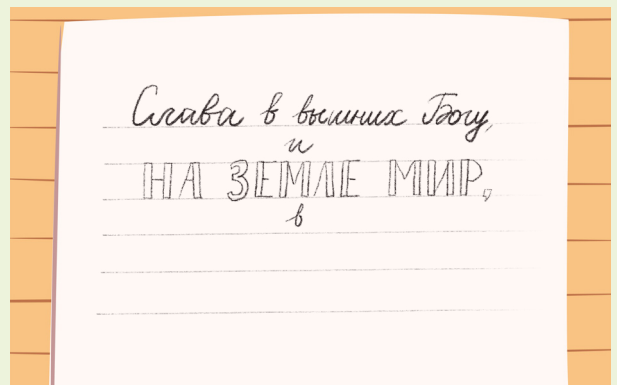 Слава в вышних Богу,
и
НА ЗЕМЛЕ МИР,
в